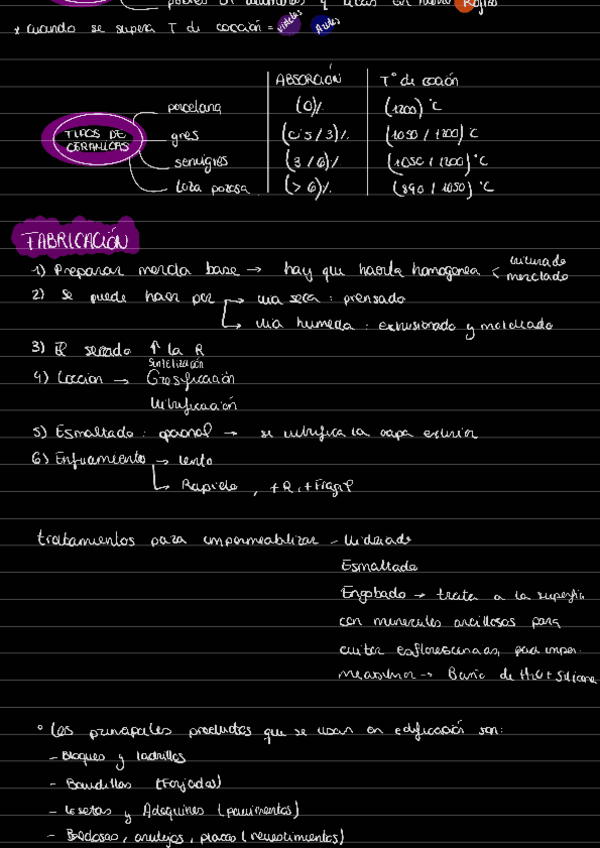 pobres en aluminosos y ricas en hierro Rojizo
* Cuando se supera T de cocción = violetas Azules
ABSORCIÓN T° de cocción
TIPOS DE CERAMICAS
porcelana (0)% (1200) °C
gres (0'5/3)% (1050/1200) °C
semigres (3/6)% (1050/1200) °C
loza porosa (>6)% (890/1050) °C
FABRICACIÓN
1) Preparar mezcla base → hay que hacerla homogenea < triturado mezclado
2) Se puede hacer por → via seca : prensado
→ via humeda : extrusionado y moldeado
3) El secado ↑ la R
4) Coccion → Sintetización
Gresificación
Vitrificación
5) Esmaltado : opcional → se vitrifica la capa exterior
6) Enfriamiento → lento
→ Rapido , +R, +Fragil
tratamientos para impermeabilizar - Vidriado
Esmaltado
Engobado → tratar a la superficie
con minerales arcillosos para
evitar eflorescencias, para imper.
meabilizar → Baño de H2O + Silicona
° Los principales productos que se usan en edificación son:
- Bloques y ladrillos
- Bovedillas (Forjados)
- Losetas y Adoquines (pavimentos)
- Baldosas, azulejos, placas (revestimientos)